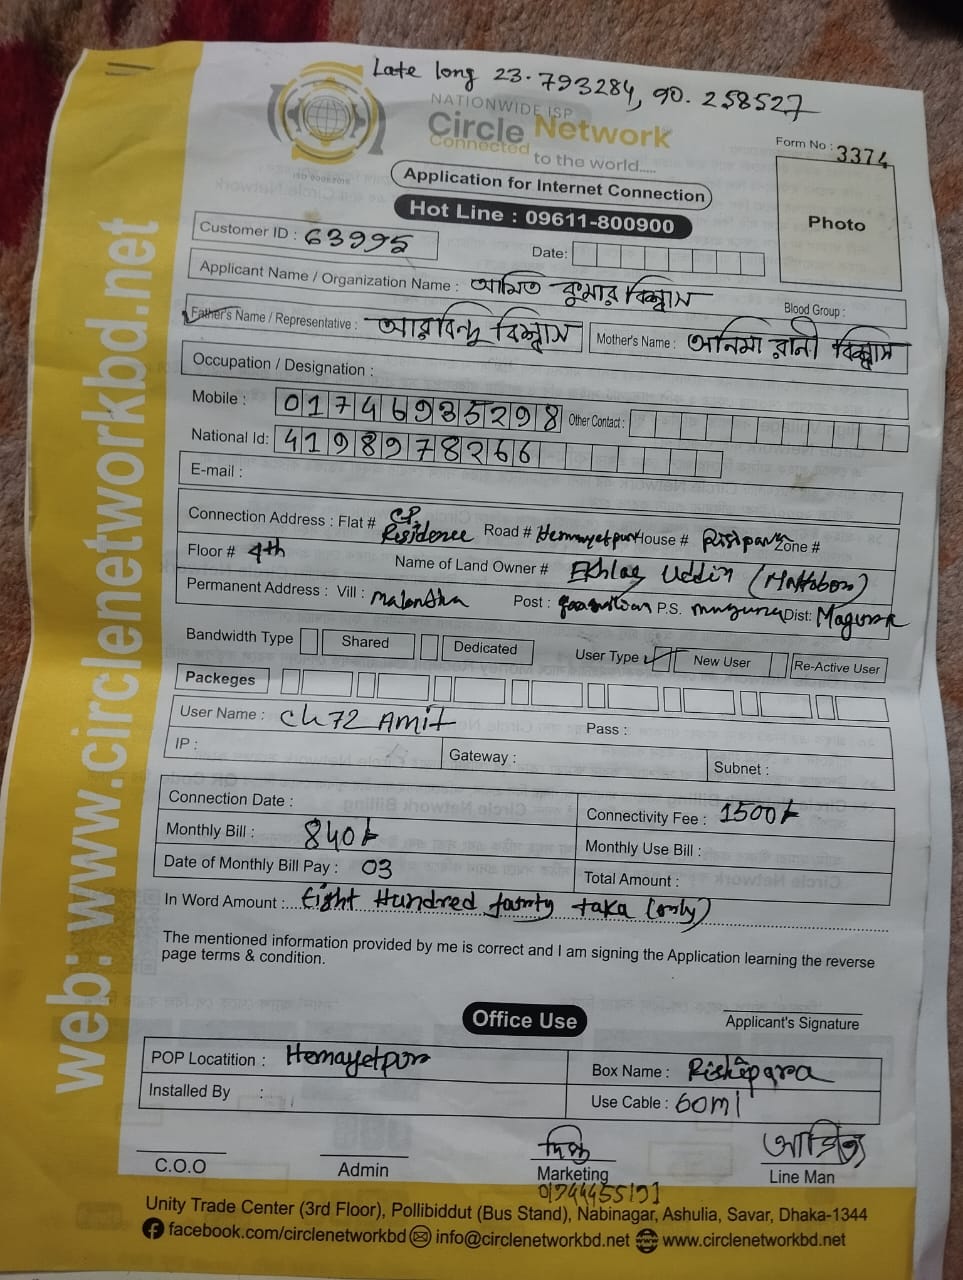 Late long 23.793284, 90.258527
NATIONWIDE ISP
Circle Network
Connected to the world.....
ISO 9001:2015
Form No : 3374
Application for Internet Connection
Photo
Hot Line : 09611-800900
Customer ID : 63995
Date:
Applicant Name / Organization Name : অমিত কুমার বিশ্বাস
Blood Group :
Father's Name / Representative : আরবিন্দু বিশ্বাস Mother's Name : অনিমা রানী বিশ্বাস
Occupation / Designation :
Mobile : 01746935298 Other Contact :
National Id: 4198978266
E-mail :
Connection Address : Flat # C.P. Residence Road # Hemayetpur House # Rishipara Zone #
Floor # 4th Name of Land Owner # Ekhlag Uddin (Mattobor)
Permanent Address : Vill : Malandha Post : P.S. Magura Dist: Magura
Bandwidth Type Shared Dedicated User Type New User Re-Active User
Packeges
User Name : Ch72 Amit Pass :
IP : Gateway : Subnet :
Connection Date : Connectivity Fee : 1500/-
Monthly Bill : 840/- Monthly Use Bill :
Date of Monthly Bill Pay : 03 Total Amount :
In Word Amount : Eight Hundred famty taka (only)
The mentioned information provided by me is correct and I am signing the Application learning the reverse
page terms & condition.
Applicant's Signature
Office Use
POP Locatition : Hemayetpur Box Name : Rishipara
Installed By : Use Cable : 60ml
C.O.O Admin Marketing Line Man
01744455191
Unity Trade Center (3rd Floor), Pollibiddut (Bus Stand), Nabinagar, Ashulia, Savar, Dhaka-1344
facebook.com/circlenetworkbd info@circlenetworkbd.net www.circlenetworkbd.net
web: www.circlenetworkbd.net